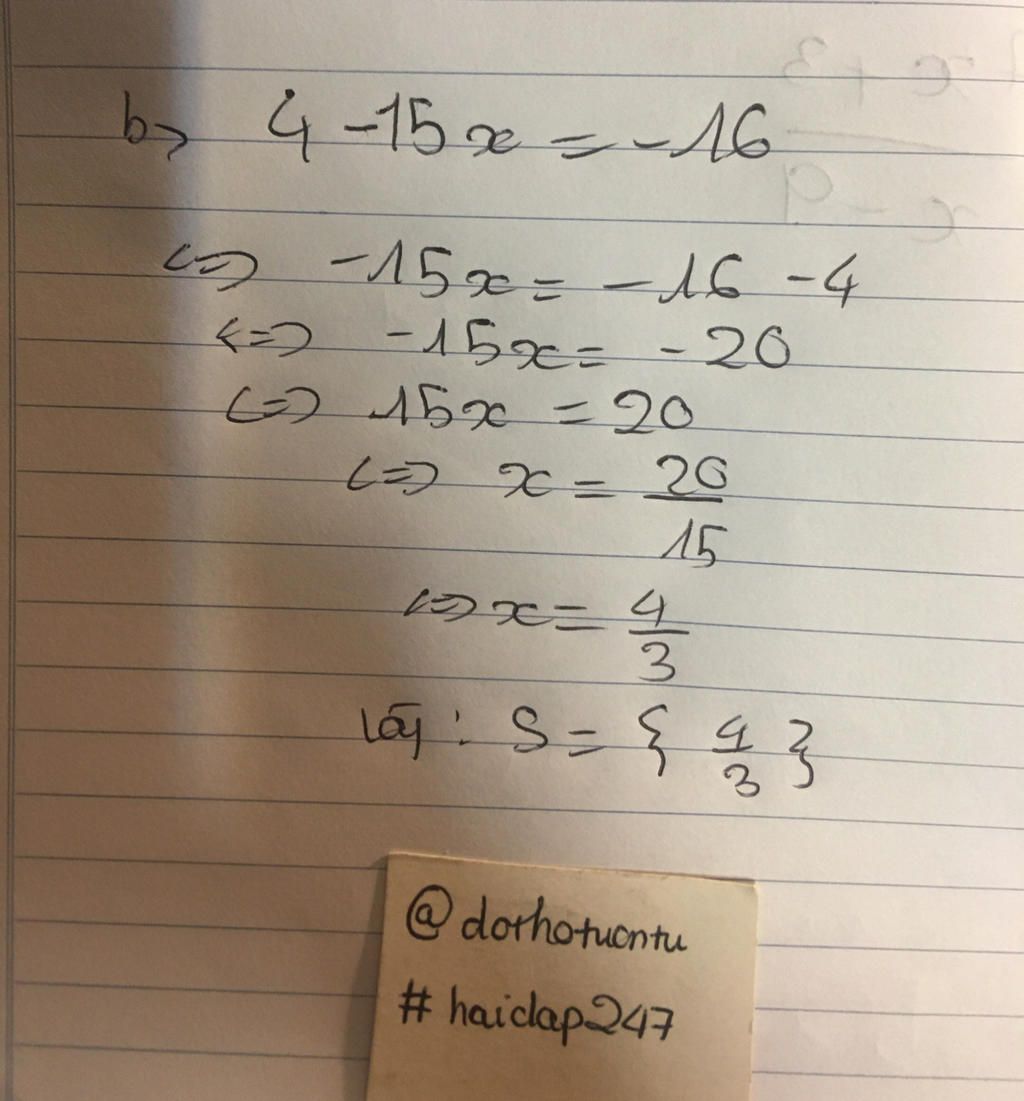 b> 4 - 15x = -16
<=> -15x = -16 - 4
<=> -15x = -20
<=> 15x = 20
<=> x = 20/15
<=> x = 4/3
Vậy : S = { 4/3 }
@dothotuantu
#haidap247